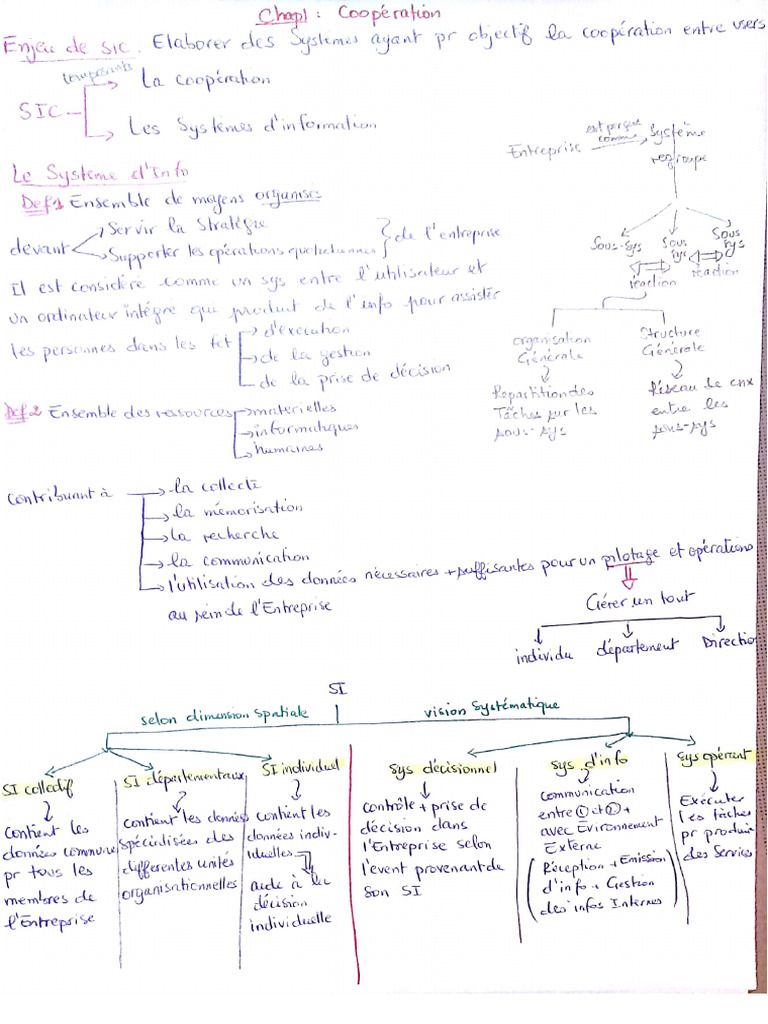 Chap1 : Coopération
Enjeu de SIC. Elaborer des Systèmes ayant pr objectif la coopération entre users
composants
SIC
La coopération
Les Systèmes d'information
Entreprise est perçue comme Système
regroupe
Sous-Sys
Sous sys
Sous sys
réaction
réaction
organisation Générale
Structure Générale
Repartition des
Tâches sur les
sous-sys
Réseau de cnx
entre les
sous-sys
Le Système d'Info
Def1 Ensemble de moyens organisés
devant
Servir la Stratégie
Supporter les opérations quotidiennes
de l'entreprise
Il est considéré comme un sys entre l'utilisateur et
un ordinateur intégré qui produit de l'info pour assister
les personnes dans les fct
d'execution
de la gestion
de la prise de décision
Def2 Ensemble des ressources
materielles
informatiques
humaines
contribuant à
la collecte
la mémorisation
la recherche
la communication
l'utilisation des données nécessaires + suffisantes pour un pilotage et opérations
au sein de l'Entreprise
Gérer un tout
individu
département
Direction
SI
selon dimension spatiale
vision Systématique
SI collectif
contient les
données commune
pr tous les
membres de
l'Entreprise
SI départementaux
contient les données
spécialisées des
differentes unités
organisationnelles
SI individuel
contient les
données indiv-
iduelles
aide à la
décision
individuelle
Sys décisionnel
contrôle + prise de
décision dans
l'Entreprise selon
l'event provenant de
son SI
Sys d'info
Communication
entre ① et ② +
avec Environnement
Externe
(Réception + Emission
d'info + Gestion
des infos Internes)
Sys opérant
Exécuter
les tâches
pr produire
des Services